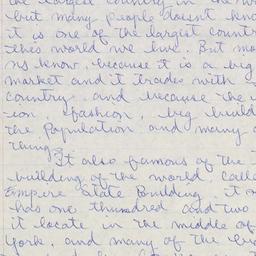 the largest country in the w
but many people doesnt kno
it is one of the largest countr
thes world we live. But mo
ns know, because it is a big
market and it trades with
country. and because the
ion, fashion, big build
the population and many o
things.
It also famous of the
building of the world calle
Empire State Building. it
has one thundred and two
it locate in the middle of
York, and many of the